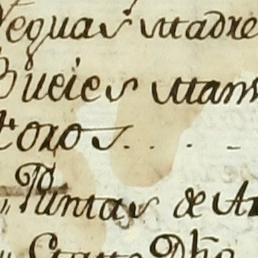 Yeguas Madre
Bueies Mans
toros....
Puntas de A